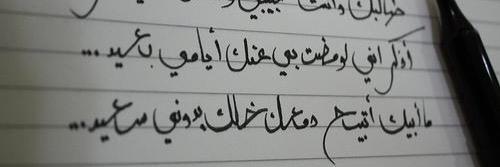 وانت
أذكر اني لو مضت بي عنك أيامي بعيد ...
ما أبيك أتبيح دمعك خلك بدوني سعيد ...